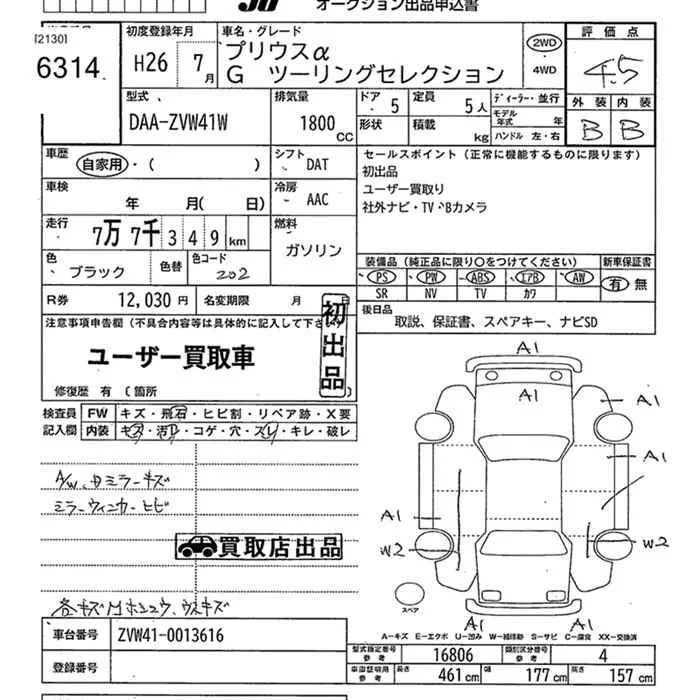 JU オークション出品申込書
[2130]
6314
初度登録年月
H26 7月
車名・グレード
プリウスα
G ツーリングセレクション
2WD
・
4WD
評価点
4.5
外装 内装
B B
型式
DAA-ZVW41W
排気量
1800 CC
ドア 5
定員 5人
ディーラー・並行
形状
積載 kg
モデル年式 年
ハンドル 左・右
車歴
自家用・( )
シフト DAT
セールスポイント (正常に機能するものに限ります)
初出品
ユーザー買取り
社外ナビ・TV・Bカメラ
車検 年 月( 日)
冷房 AAC
走行 7万 7千 3 4 9 km
燃料
ガソリン
色
ブラック
色替
色コード
202
装備品 (純正品に限り○をつけてください)
新車保証書
PS PW ABS エアB AW
SR NV TV カワ
有 無
R券 12,030円
名変期限 月 日
後日品
取説、保証書、スペアキー、ナビSD
注意事項申告欄 (不具合内容等は具体的に記入して下さい)
初出品
ユーザー買取車
修復歴 有 (箇所
検査員記入欄
FW キズ・飛石・ヒビ割・リペア跡・X要
内装 キズ・汚れ・コゲ・穴・スレ・キレ・破レ
A1
A1
A1
A1
A/W、ミラーキズ
ミラーウィンカーヒビ
A1
買取店出品
W2
W2
スペア
A1 A1
A−キズ E−エクボ U−凹み W−補修跡 S−サビ C−腐食 XX−交換済
車台番号 ZVW41-0013616
型式指定番号 参考 16806
類別区分番号 参考 4
登録番号
車庫証明用 参考
長さ 461 cm 幅 177 cm 高さ 157 cm